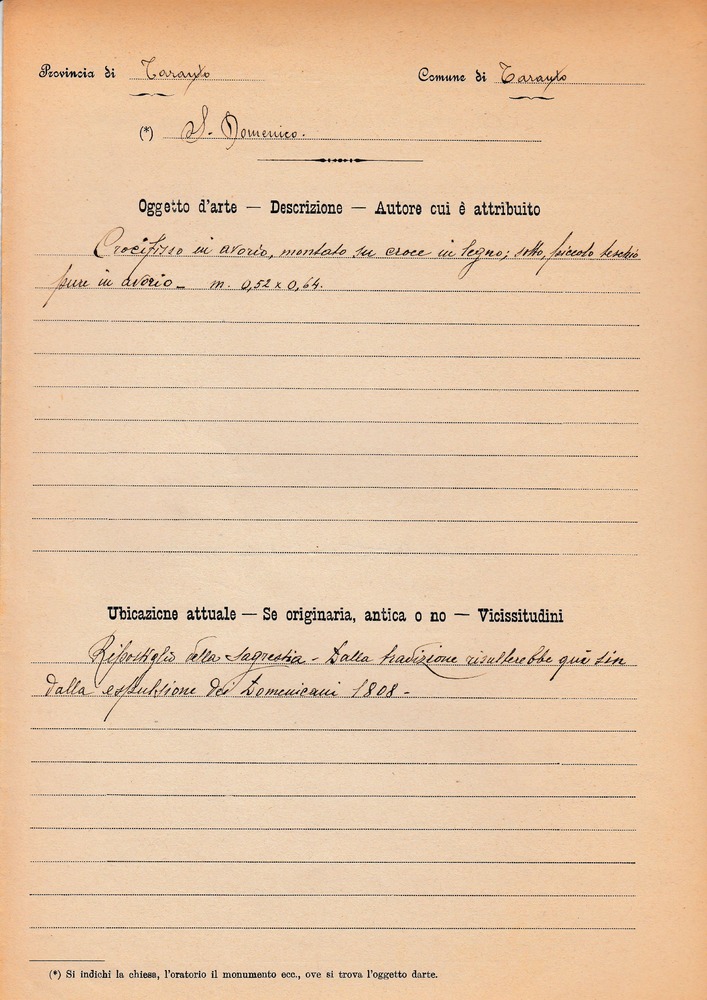 Provincia di Taranto
Comune di Taranto
(*) S. Domenico.
Oggetto d'arte — Descrizione — Autore cui è attribuito
Crocifisso in avorio, montato su croce in legno; sotto, piccolo teschio
pure in avorio — m. 0,52 x 0,64.
Ubicazione attuale — Se originaria, antica o no — Vicissitudini
Ripostiglio della sagrestia - Dalla tradizione risulterebbe qui sin
dalla espulsione dei Domenicani 1808 -
(*) Si indichi la chiesa, l'oratorio il monumento ecc., ove si trova l'oggetto darte.